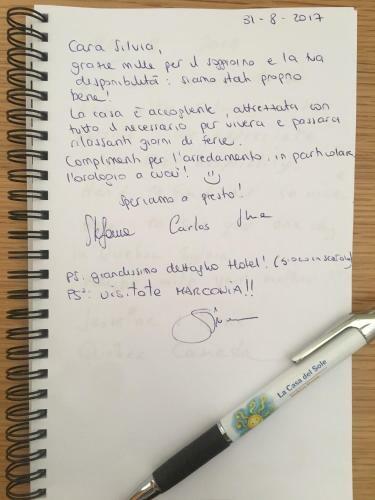 31-8-2017
Cara Silvia,
grazie mille per il soggiorno e la tua
disponibilità: siamo stati proprio
bene!
La casa è accogliente, attrezzata con
tutto il necessario per vivere e passare
rilassanti giorni di ferie.
Complimenti per l'arredamento, in particolare
l'orologio a cucù!
Speriamo a presto!
Stefania Carlos
PS. grandissimo dettaglio Hotel! (gioco in scatola)
PS²: visitate MARCONIA!!
La Casa del Sole